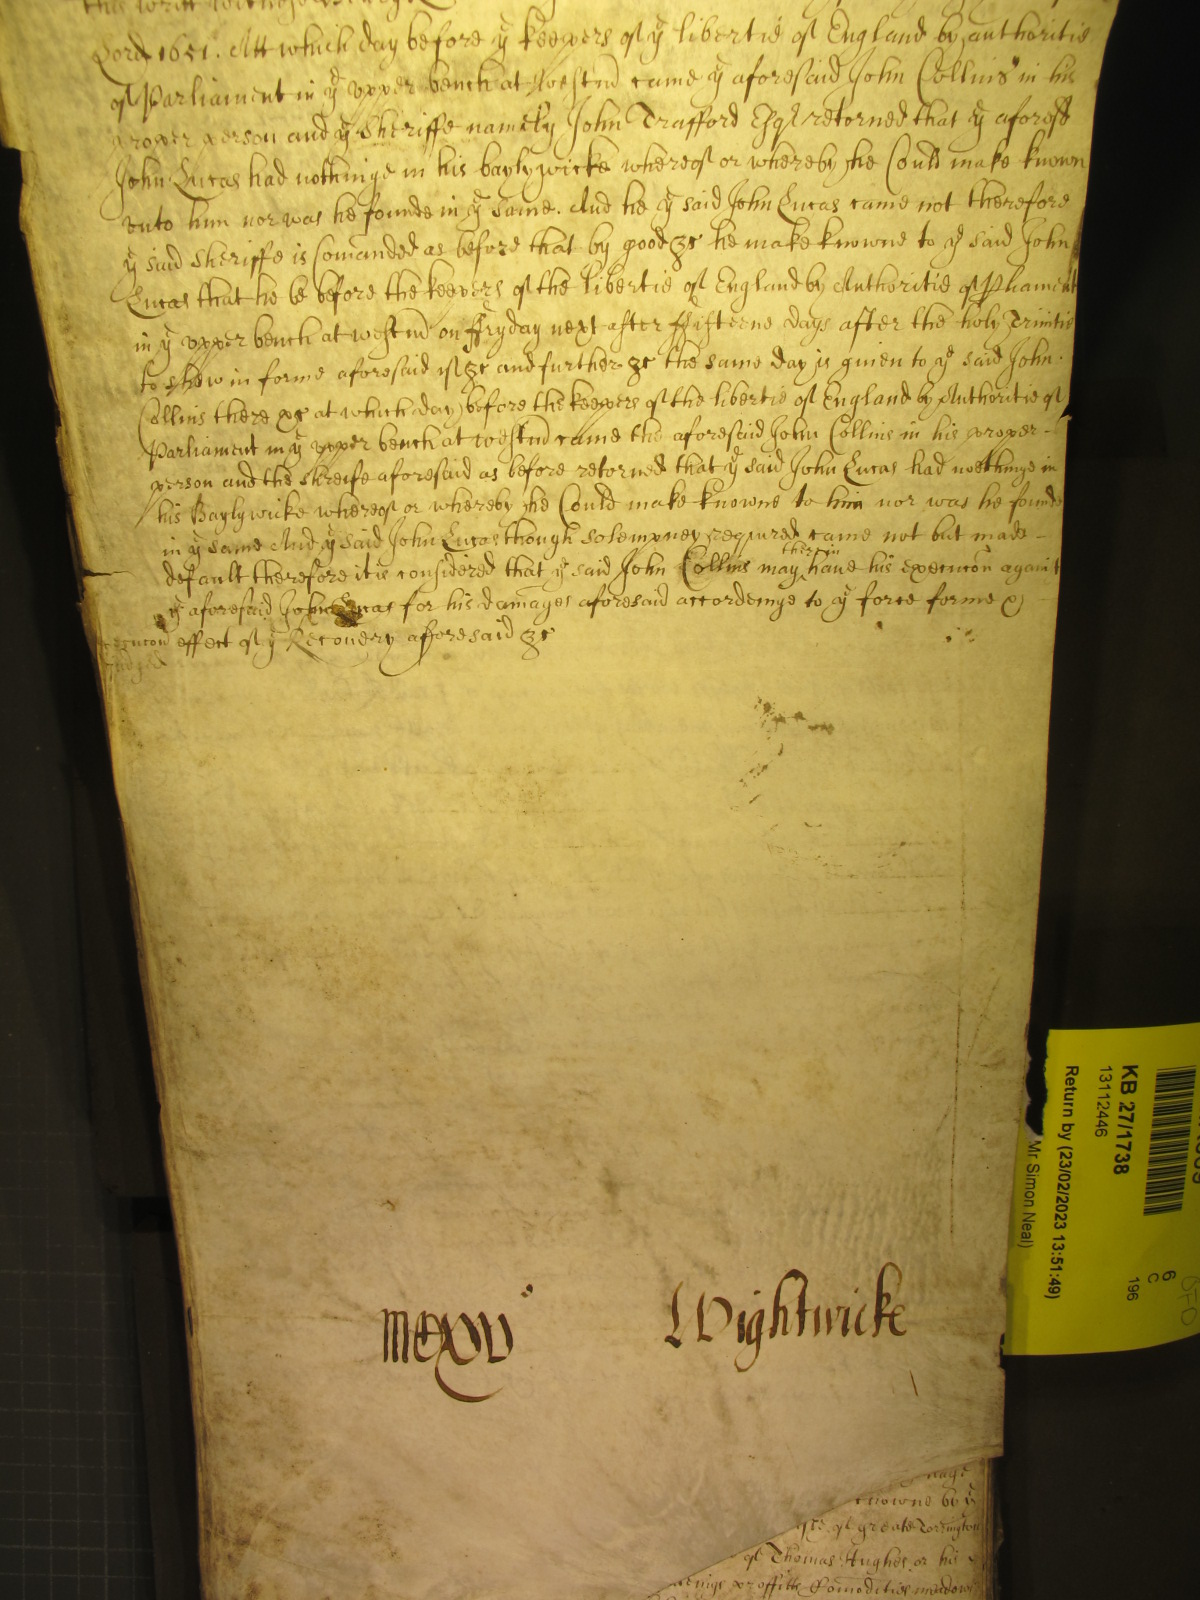 this writt witnes
Lord 1651. Att which day before yͤ keepers of yͤ libertie of England by authoritie
of Parliament in yͤ vpper bench at Westm̄ came yͤ aforesaid John Collins in his
proper person and yͤ Sheriffe namely John Trafford Esqʳ retorned that yͤ aforesd
John Lucas had nothinge in his baylywicke whereof or whereby he Could make known
vnto him nor was he founde in yͤ same. And he yͤ said John Lucas came not therefore
yͤ said Sheriffe is Com̄anded as before that by good &c he make knowne to yͤ said John
Lucas that he be before the keepers of the libertie of England by Authoritie of Parliament
in yͤ vpper bench at westm̄ on ffryday next after ffifteene days after the holy Trinitie
to shew in forme aforesaid if &c and further &c the same day is giuen to yͤ said John
Collins there &c at which day before the keepers of the libertie of England by Authoritie of
Parliament in yͤ vpper bench at westm̄ came the aforesaid John Collins in his proper
person and the shreife aforesaid as before retorned that yͤ said John Lucas had noethinge in
his Baylywicke whereof or whereby he Could make knowne to him nor was he founde
in yͤ same And yͤ said John Lucas though solempney required came not but made
default therefore it is considered that yͤ said John Collins may therein haue his execuc̄on against
yͤ aforesaid John Lucas for his damages aforesaid accordeinge to yͤ force forme &
effect of yͤ Recouery afforesaid &c
MCXVV
Wightwicke
knowne by yͤ
of greate Torrington
of Thomas Hughes or his
proffitts Comodities meadows
KB 27/1738
13112446
Return by (23/02/2023 13:51:49)
Mr Simon Neal)
6
C
196